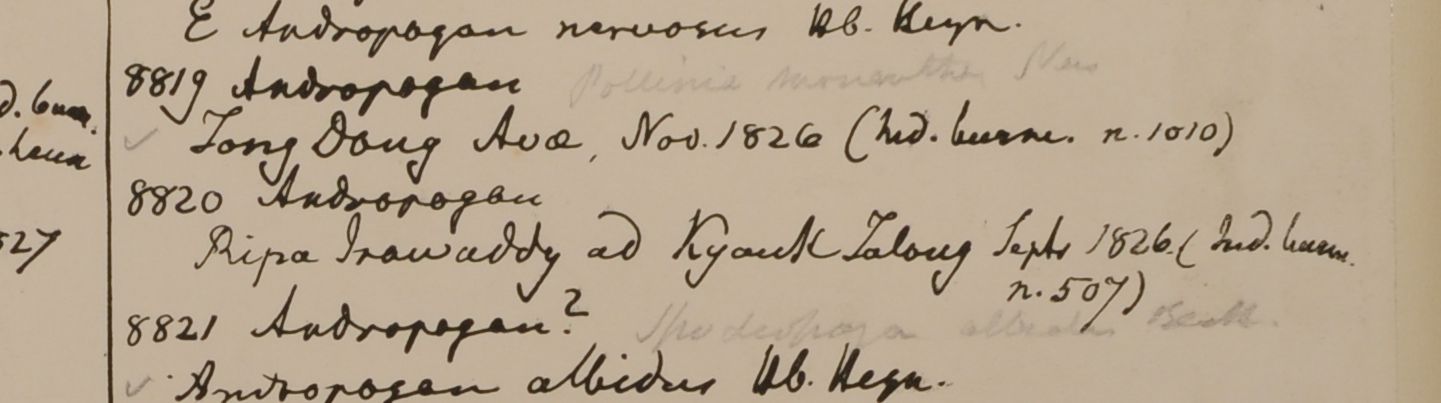 E Andropogon nervosus Hb. Heyn.
8819 Andropogon Pollinia monantha Nees
Tong Dong Avæ, Nov. 1826 (Ind. burm. n. 1010)
8820 Andropogon
Ripa Irawaddy ad Kyauk Talong Septr 1826. (Ind. burm.
n. 507)
8821 Andropogon? Spodiopogon albidus Benth.
Andropogon albidus Hb. Heyn.
27